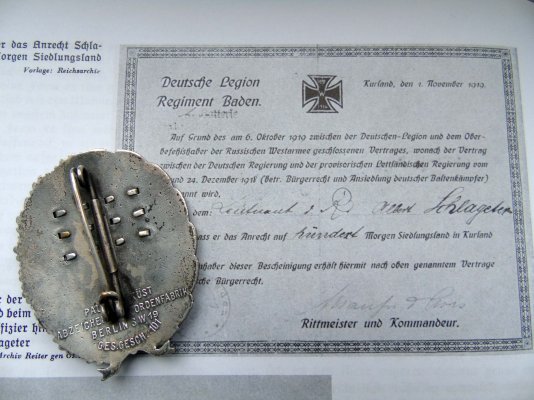 er das Anrecht Schla-
Morgen Siedlungsland
Vorlage: Reichsarchiv
Deutsche Legion
Regiment Baden.
Kurland, den 1. November 1919.
Auf Grund des am 6. Oktober 1919 zwischen der Deutschen-Legion und dem Ober-
befehlshaber der Russischen Westarmee geschlossenen Vertrages, wonach der Vertrag
zwischen der Deutschen Regierung und der provisorischen Lettländischen Regierung vom
und 24. Dezember 1918 (betr. Bürgerrecht und Ansiedlung deutscher Baltenkämpfer)
annt wird,
dem Leutnant d. R. Albert Schlageter
ass er das Anrecht auf hundert Morgen Siedlungsland in Kurland
haber dieser Bescheinigung erhält hiermit nach oben genanntem Vertrage
che Bürgerrecht.
Rittmeister und Kommandeur.
PAUL KÜST
ABZEICHEN ORDENFABRIK
BERLIN S.W.19
GES. GESCH.
er der
nd beim
fizier hi
ageter
Archiv Reiter gen